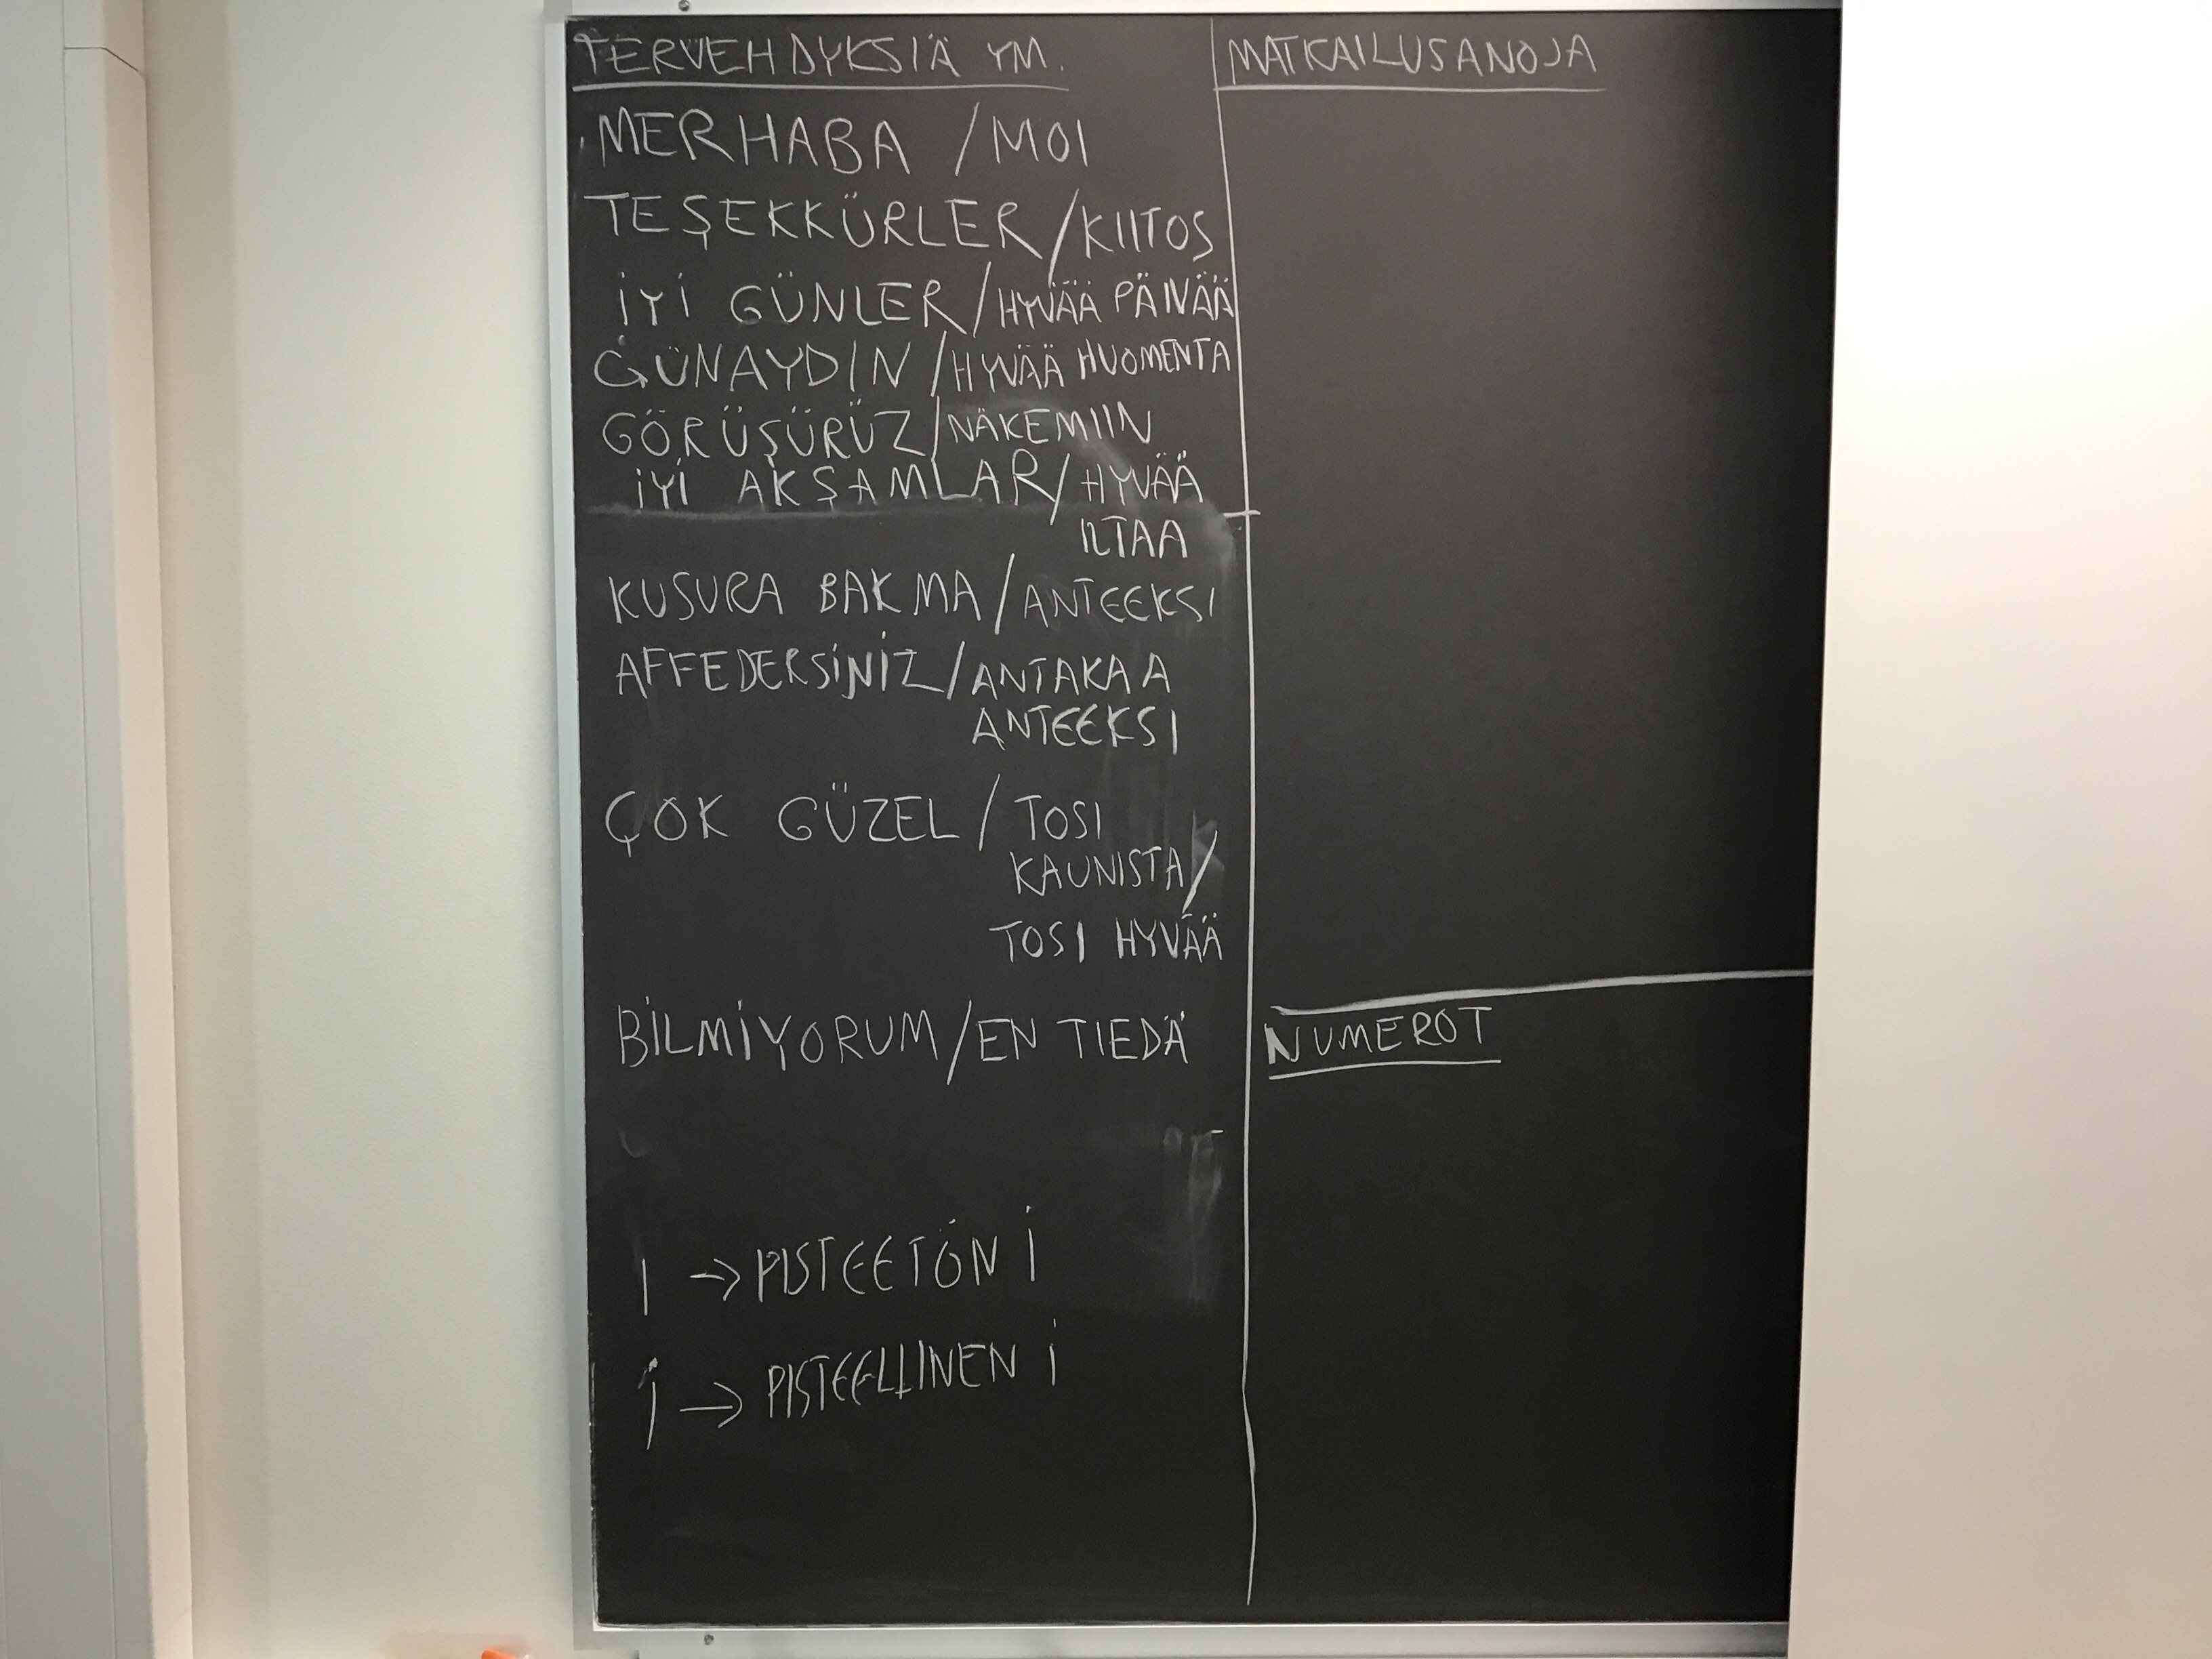 TERVEHDYKSIÄ YM.
MERHABA / MOI
TEŞEKKÜRLER / KIITOS
İYİ GÜNLER / HYVÄÄ PÄIVÄÄ
GÜNAYDIN / HYVÄÄ HUOMENTA
GÖRÜŞÜRÜZ / NÄKEMIIN
İYİ AKŞAMLAR / HYVÄÄ
ILTAA
KUSURA BAKMA / ANTEEKSI
AFFEDERSİNİZ / ANTAKAA
ANTEEKSI
ÇOK GÜZEL / TOSI
KAUNISTA /
TOSI HYVÄÄ
BİLMİYORUM / EN TIEDÄ
I → PISTEETÖN İ
İ → PISTEELLINEN İ
MATKAILUSANOJA
NUMEROT